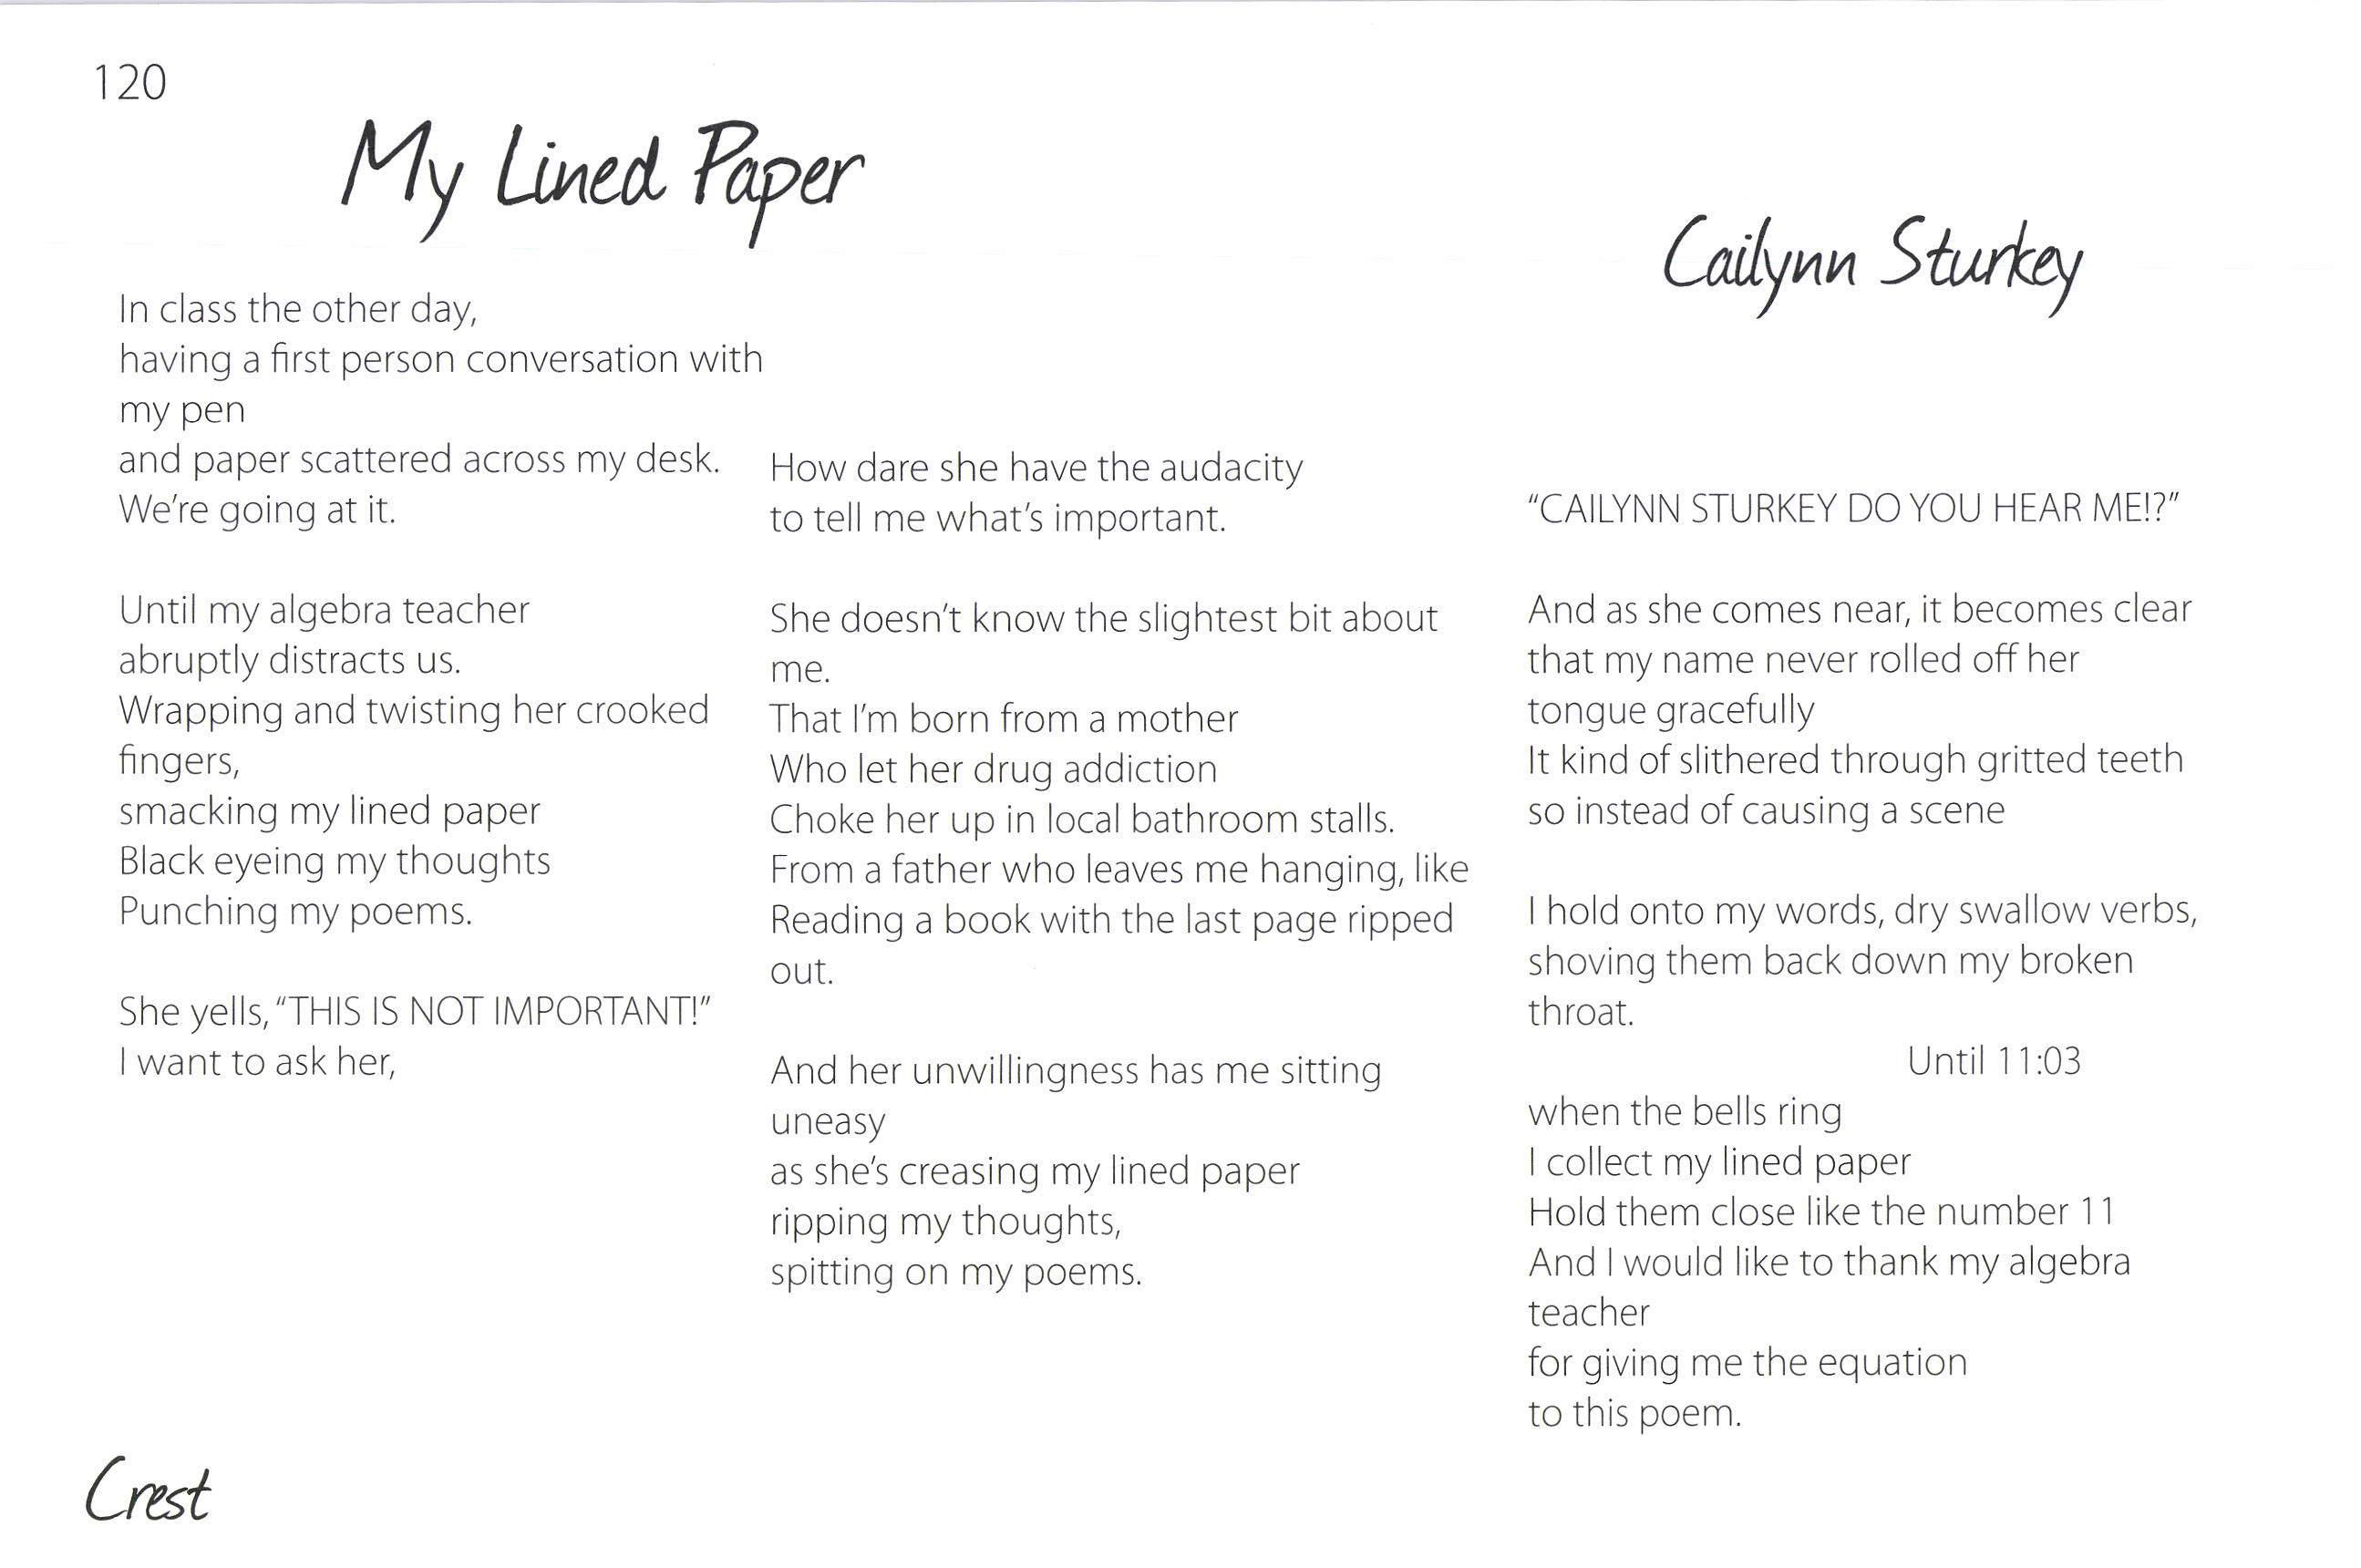 120
My Lined Paper
Cailynn Sturkey
In class the other day,
having a first person conversation with
my pen
and paper scattered across my desk.
We're going at it.
Until my algebra teacher
abruptly distracts us.
Wrapping and twisting her crooked
fingers,
smacking my lined paper
Black eyeing my thoughts
Punching my poems.
She yells, "THIS IS NOT IMPORTANT!"
I want to ask her,
How dare she have the audacity
to tell me what's important.
She doesn't know the slightest bit about
me.
That I'm born from a mother
Who let her drug addiction
Choke her up in local bathroom stalls.
From a father who leaves me hanging, like
Reading a book with the last page ripped
out.
And her unwillingness has me sitting
uneasy
as she's creasing my lined paper
ripping my thoughts,
spitting on my poems.
"CAILYNN STURKEY DO YOU HEAR ME!?"
And as she comes near, it becomes clear
that my name never rolled off her
tongue gracefully
It kind of slithered through gritted teeth
so instead of causing a scene
I hold onto my words, dry swallow verbs,
shoving them back down my broken
throat.
Until 11:03
when the bells ring
I collect my lined paper
Hold them close like the number 11
And I would like to thank my algebra
teacher
for giving me the equation
to this poem.
Crest